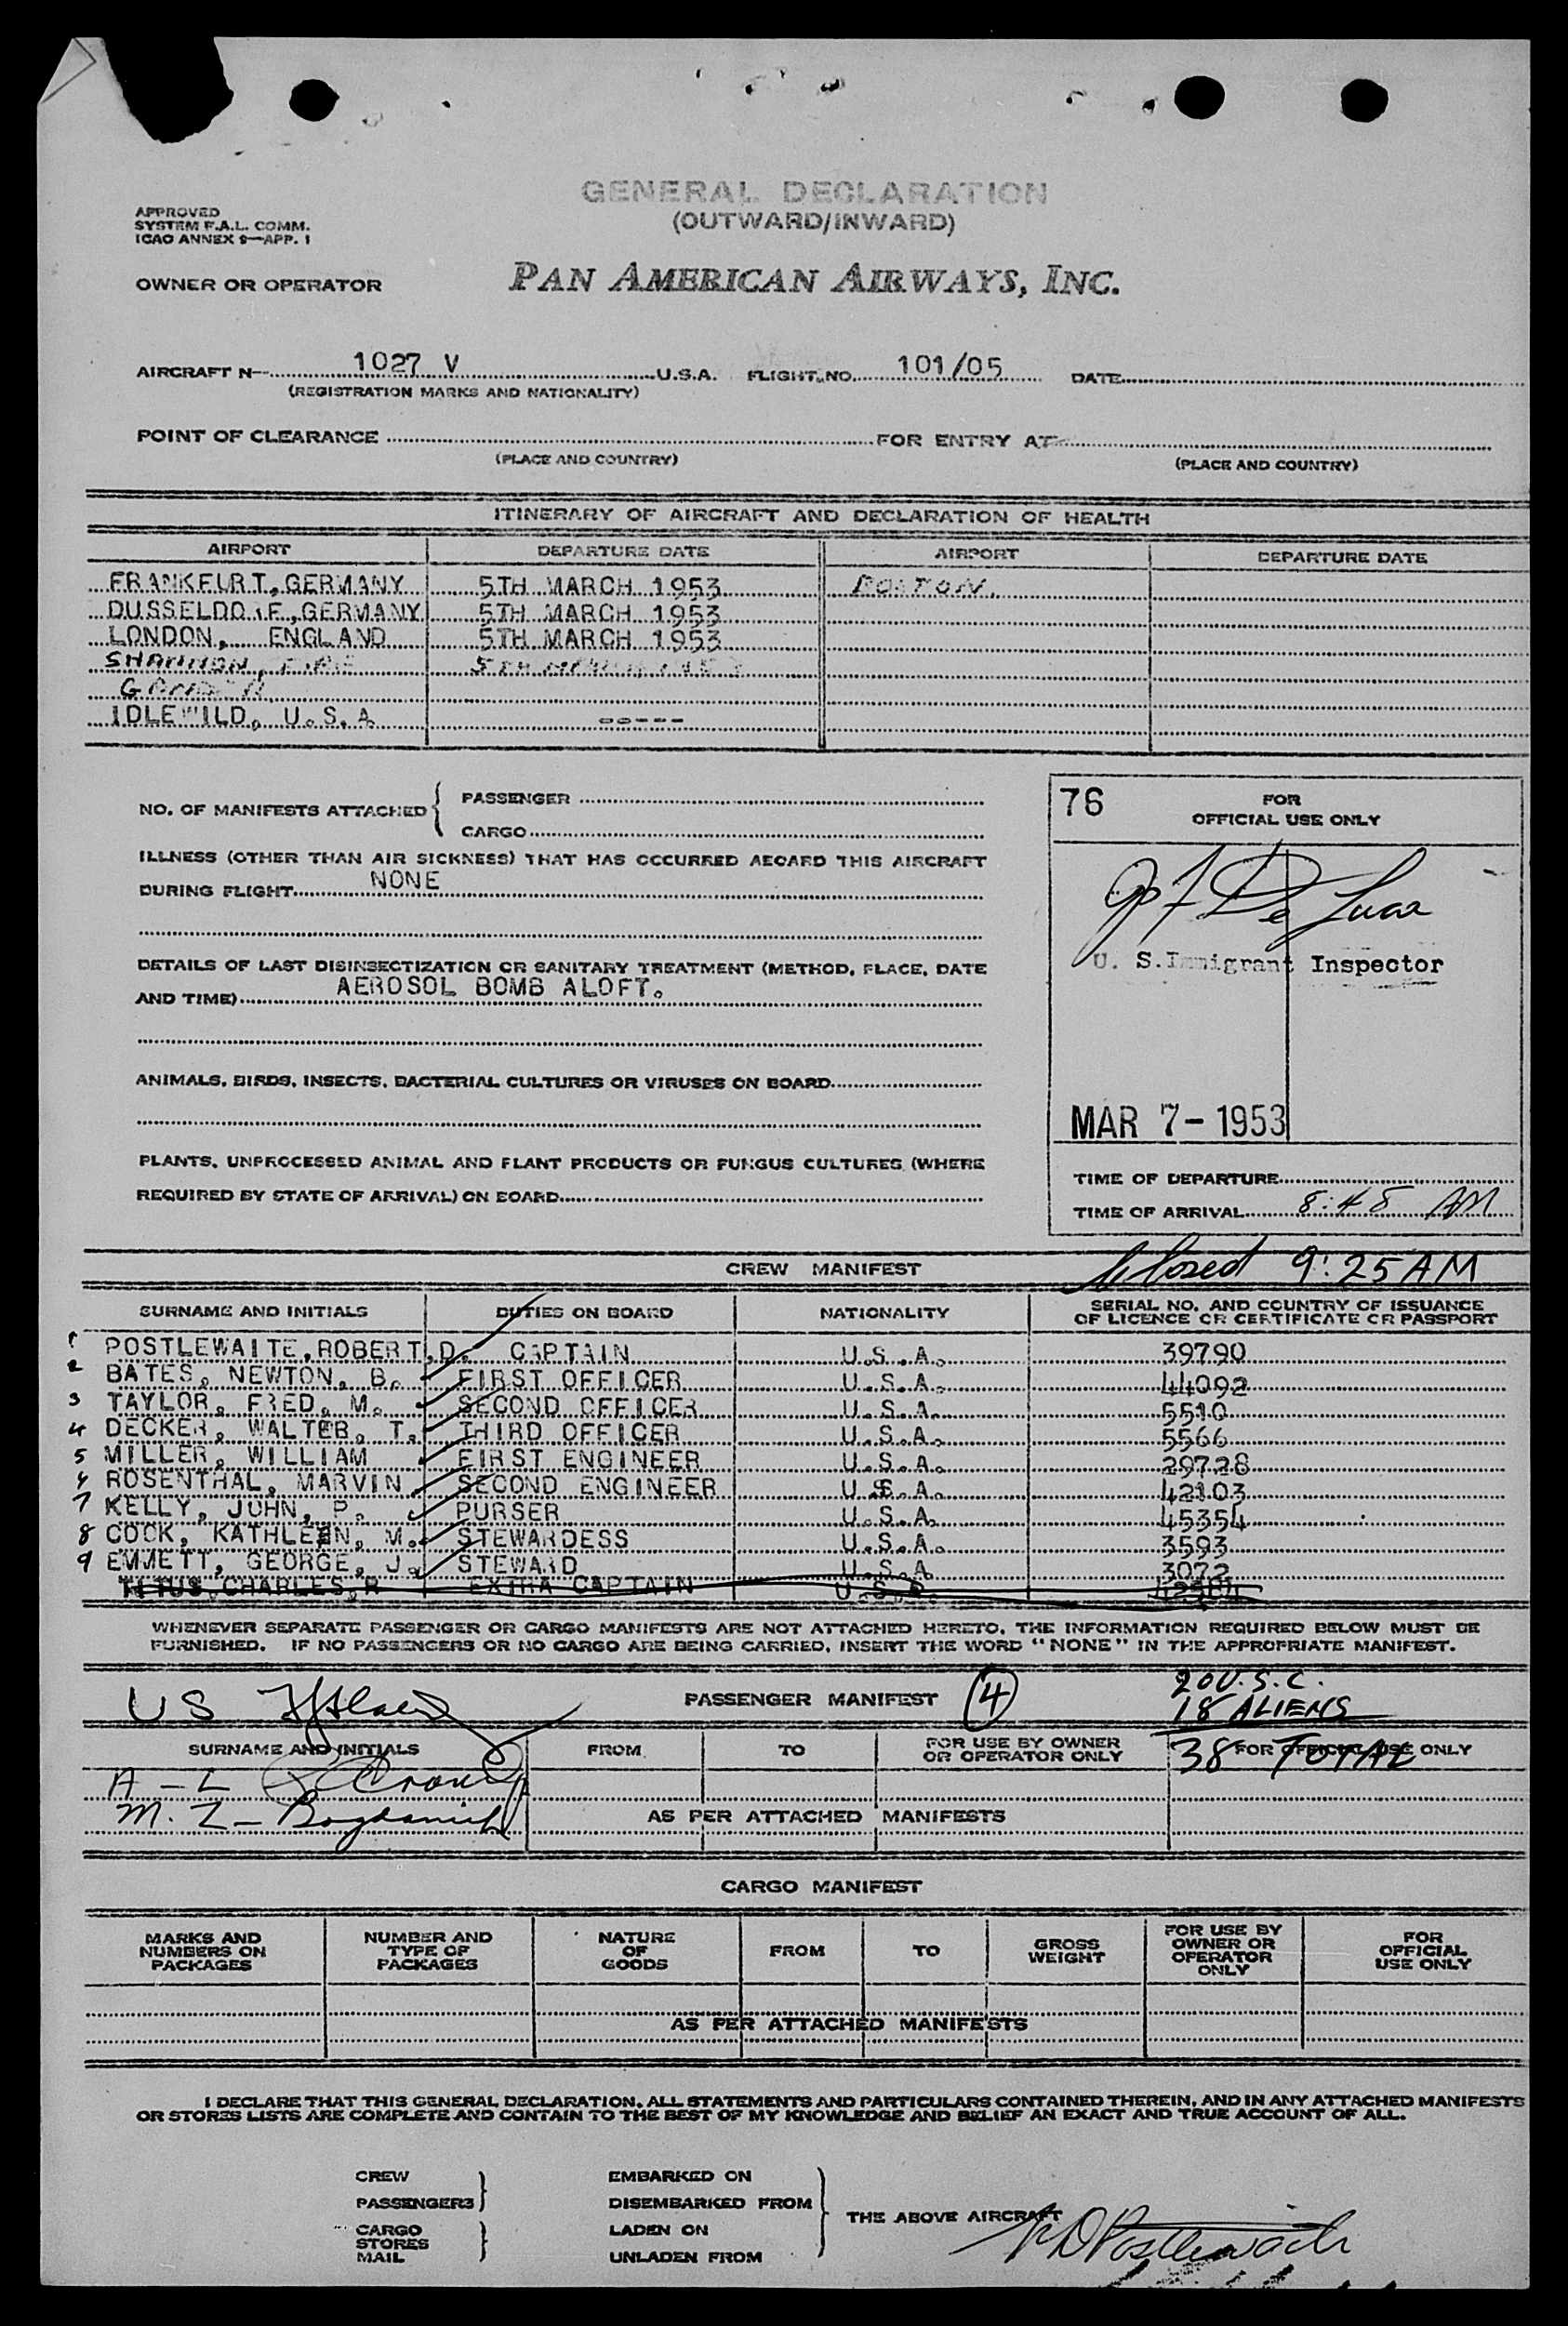 GENERAL DECLARATION
(OUTWARD/INWARD)
APPROVED
SYSTEM F.A.L. COMM.
ICAO ANNEX 9—APP. 1
OWNER OR OPERATOR PAN AMERICAN AIRWAYS, INC.
AIRCRAFT N— 1027 V U.S.A. FLIGHT NO. 101/05 DATE
(REGISTRATION MARKS AND NATIONALITY)
POINT OF CLEARANCE FOR ENTRY AT
(PLACE AND COUNTRY) (PLACE AND COUNTRY)
ITINERARY OF AIRCRAFT AND DECLARATION OF HEALTH
AIRPORT DEPARTURE DATE AIRPORT DEPARTURE DATE
FRANKFURT, GERMANY 5TH MARCH 1953 BOSTON.
DUSSELDORF, GERMANY 5TH MARCH 1953
LONDON, ENGLAND 5TH MARCH 1953
SHANNON, EIRE 5TH MARCH 1953
GANDER
IDLEWILD, U.S.A. -----
NO. OF MANIFESTS ATTACHED { PASSENGER
CARGO
ILLNESS (OTHER THAN AIR SICKNESS) THAT HAS OCCURRED ABOARD THIS AIRCRAFT
DURING FLIGHT NONE
DETAILS OF LAST DISINSECTIZATION OR SANITARY TREATMENT (METHOD, PLACE, DATE
AND TIME) AEROSOL BOMB ALOFT.
ANIMALS, BIRDS, INSECTS, BACTERIAL CULTURES OR VIRUSES ON BOARD
PLANTS, UNPROCESSED ANIMAL AND PLANT PRODUCTS OR FUNGUS CULTURES (WHERE
REQUIRED BY STATE OF ARRIVAL) ON BOARD
76 FOR
OFFICIAL USE ONLY
De Luca
U. S. Immigrant Inspector
MAR 7- 1953
TIME OF DEPARTURE
TIME OF ARRIVAL 8:48 AM
CREW MANIFEST Closed 9:25 AM
SURNAME AND INITIALS DUTIES ON BOARD NATIONALITY SERIAL NO. AND COUNTRY OF ISSUANCE
OF LICENCE OR CERTIFICATE OR PASSPORT
1 POSTLEWAITE, ROBERT, D. CAPTAIN U.S.A. 39790
2 BATES, NEWTON, B. FIRST OFFICER U.S.A. 44092
3 TAYLOR, FRED, M. SECOND OFFICER U.S.A. 5510
4 DECKER, WALTER, T. THIRD OFFICER U.S.A. 5566
5 MILLER, WILLIAM FIRST ENGINEER U.S.A. 29728
6 ROSENTHAL, MARVIN SECOND ENGINEER U.S.A. 42103
7 KELLY, JOHN, P. PURSER U.S.A. 45354
8 COCK, KATHLEEN, M. STEWARDESS U.S.A. 3593
9 EMMETT, GEORGE, J. STEWARD U.S.A. 3072
TITUS, CHARLES, R EXTRA CAPTAIN U.S.A.
WHENEVER SEPARATE PASSENGER OR CARGO MANIFESTS ARE NOT ATTACHED HERETO, THE INFORMATION REQUIRED BELOW MUST BE
FURNISHED. IF NO PASSENGERS OR NO CARGO ARE BEING CARRIED, INSERT THE WORD "NONE" IN THE APPROPRIATE MANIFEST.
US PASSENGER MANIFEST 4 20 U.S.C.
18 ALIENS
38 TOTAL
SURNAME AND INITIALS FROM TO FOR USE BY OWNER
OR OPERATOR ONLY FOR OFFICIAL USE ONLY
A - L
M. Z -
AS PER ATTACHED MANIFESTS
CARGO MANIFEST
MARKS AND
NUMBERS ON
PACKAGES NUMBER AND
TYPE OF
PACKAGES NATURE
OF
GOODS FROM TO GROSS
WEIGHT FOR USE BY
OWNER OR
OPERATOR
ONLY FOR
OFFICIAL
USE ONLY
AS PER ATTACHED MANIFESTS
I DECLARE THAT THIS GENERAL DECLARATION, ALL STATEMENTS AND PARTICULARS CONTAINED THEREIN, AND IN ANY ATTACHED MANIFESTS
OR STORES LISTS ARE COMPLETE AND CONTAIN TO THE BEST OF MY KNOWLEDGE AND BELIEF AN EXACT AND TRUE ACCOUNT OF ALL.
CREW EMBARKED ON
PASSENGERS DISEMBARKED FROM
THE ABOVE AIRCRAFT
CARGO LADEN ON
STORES
MAIL UNLADEN FROM
RD Postlewaite